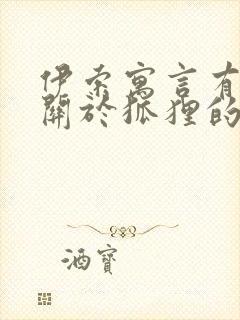 伊索寓言有
關於狐狸的
酒寶